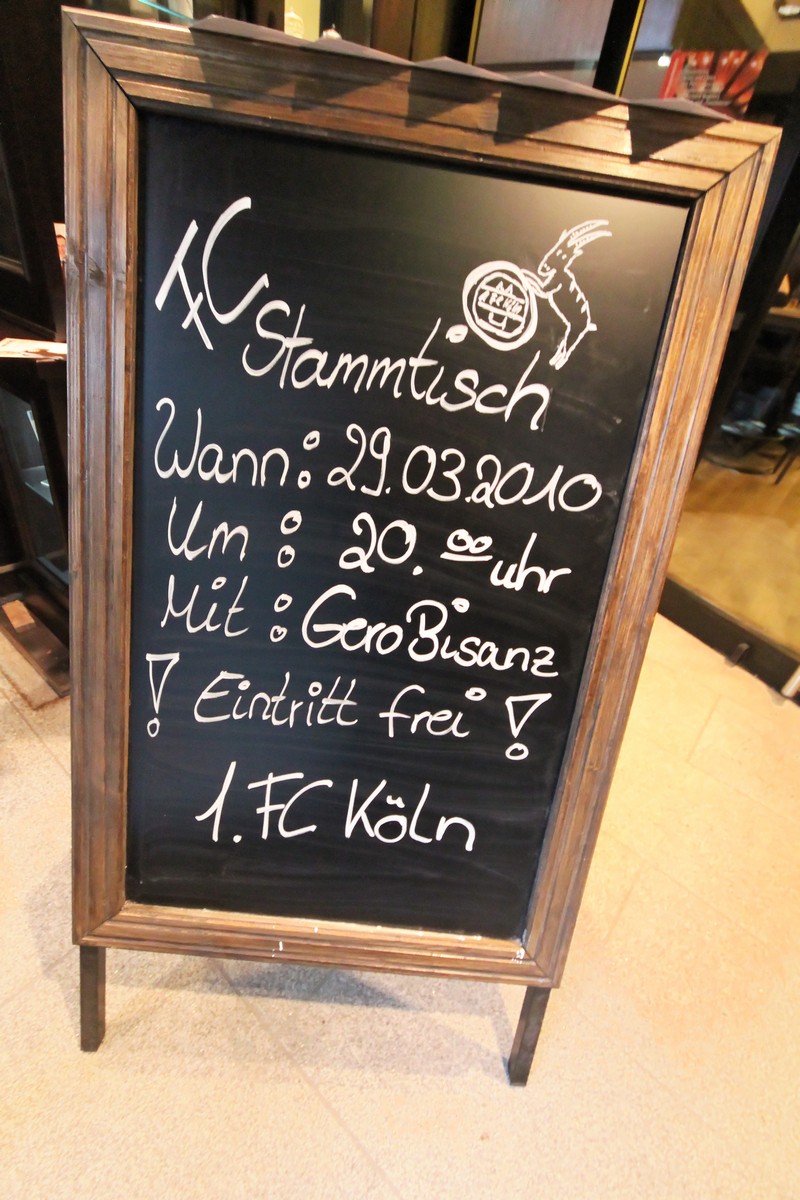 FC
Stammtisch
1. FC Köln
Wann: 29.03.2010
Um: 20.00 uhr
Mit: Gero Bisanz
! Eintritt frei !
1. FC Köln